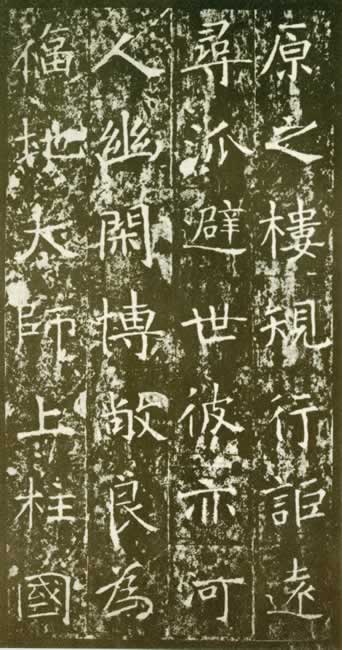 原之樓規行詎遠
尋泒避世彼亦可
人幽閑博敞良為
福地太師上柱國